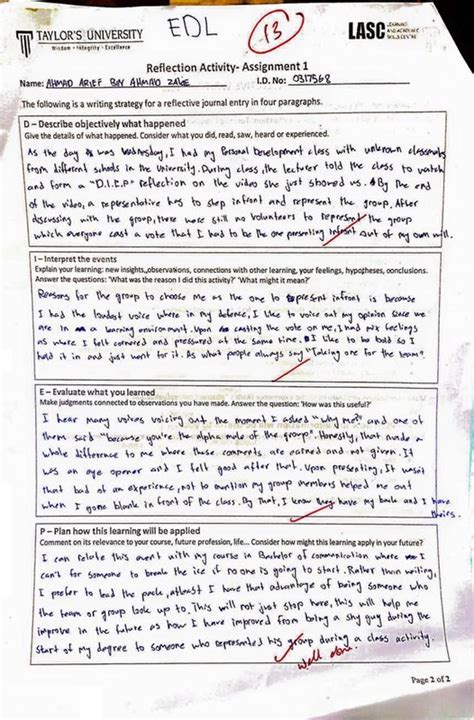 TAYLOR'S UNIVERSITY
Wisdom • Integrity • Excellence
EDL
13
LASC
Reflection Activity- Assignment 1
Name: AHMAD ARIEF BIN AHMAD ZAKE I.D. No: 0317568
The following is a writing strategy for a reflective journal entry in four paragraphs.
D – Describe objectively what happened
Give the details of what happened. Consider what you did, read, saw, heard or experienced.
As the day was Wednesday, I had my Personal Development class with unknown classmates
from different schools in the University. During class, the lecturer told the class to watch
and form a "D.I.E.P" Reflection on the video she just showed us. By the end
of the video, a representative has to step infront and represent the group. After
discussing with the group, there were still no volunteers to represent the group
which everyone cast a vote that I had to be the one presenting infront out of my own will.
I – Interpret the events
Explain your learning: new insights, observations, connections with other learning, your feelings, hypotheses, conclusions.
Answer the questions: 'What was the reason I did this activity?' 'What might it mean?'
Reasons for the group to choose me as the one to represent infront is because
I had the loudest voice where in my defence, I like to voice out my opinion since we
are in a learning environment. Upon casting the vote on me, I had mix feelings
as where I felt cornered and pressured at the same time. I like to be bold so I
held it in and just went for it. As what people always say "Taking one for the team".
E – Evaluate what you learned
Make judgments connected to observations you have made. Answer the question: 'How was this useful?'
I hear many voices voicing out, the moment I asked "why me?" and one of
them said "because you're the alpha male of the group". Honestly, that made a
whole difference to me where these comments are earned and not given. It
was an eye opener and I felt good after that. Upon presenting, It wasnt
that bad of an experience, not to mention my group members helped me out
when I gone blank in front of the class. By that, I know they have my back and I have
theirs.
P – Plan how this learning will be applied
Comment on its relevance to your course, future profession, life... Consider how might this learning apply in your future?
I can relate this event with my course in Bachelor of communication where I
can't for someone to break the ice if no one is going to start. Rather than writing,
I prefer to lead the pack, atleast I have that advantage of being someone who
the team or group look up to. This will not just stop here, this will help me
improve in the future as how I have improved from being a shy guy during the
start of my degree to someone who represented his group during a class activity.
Well done.
Page 2 of 2